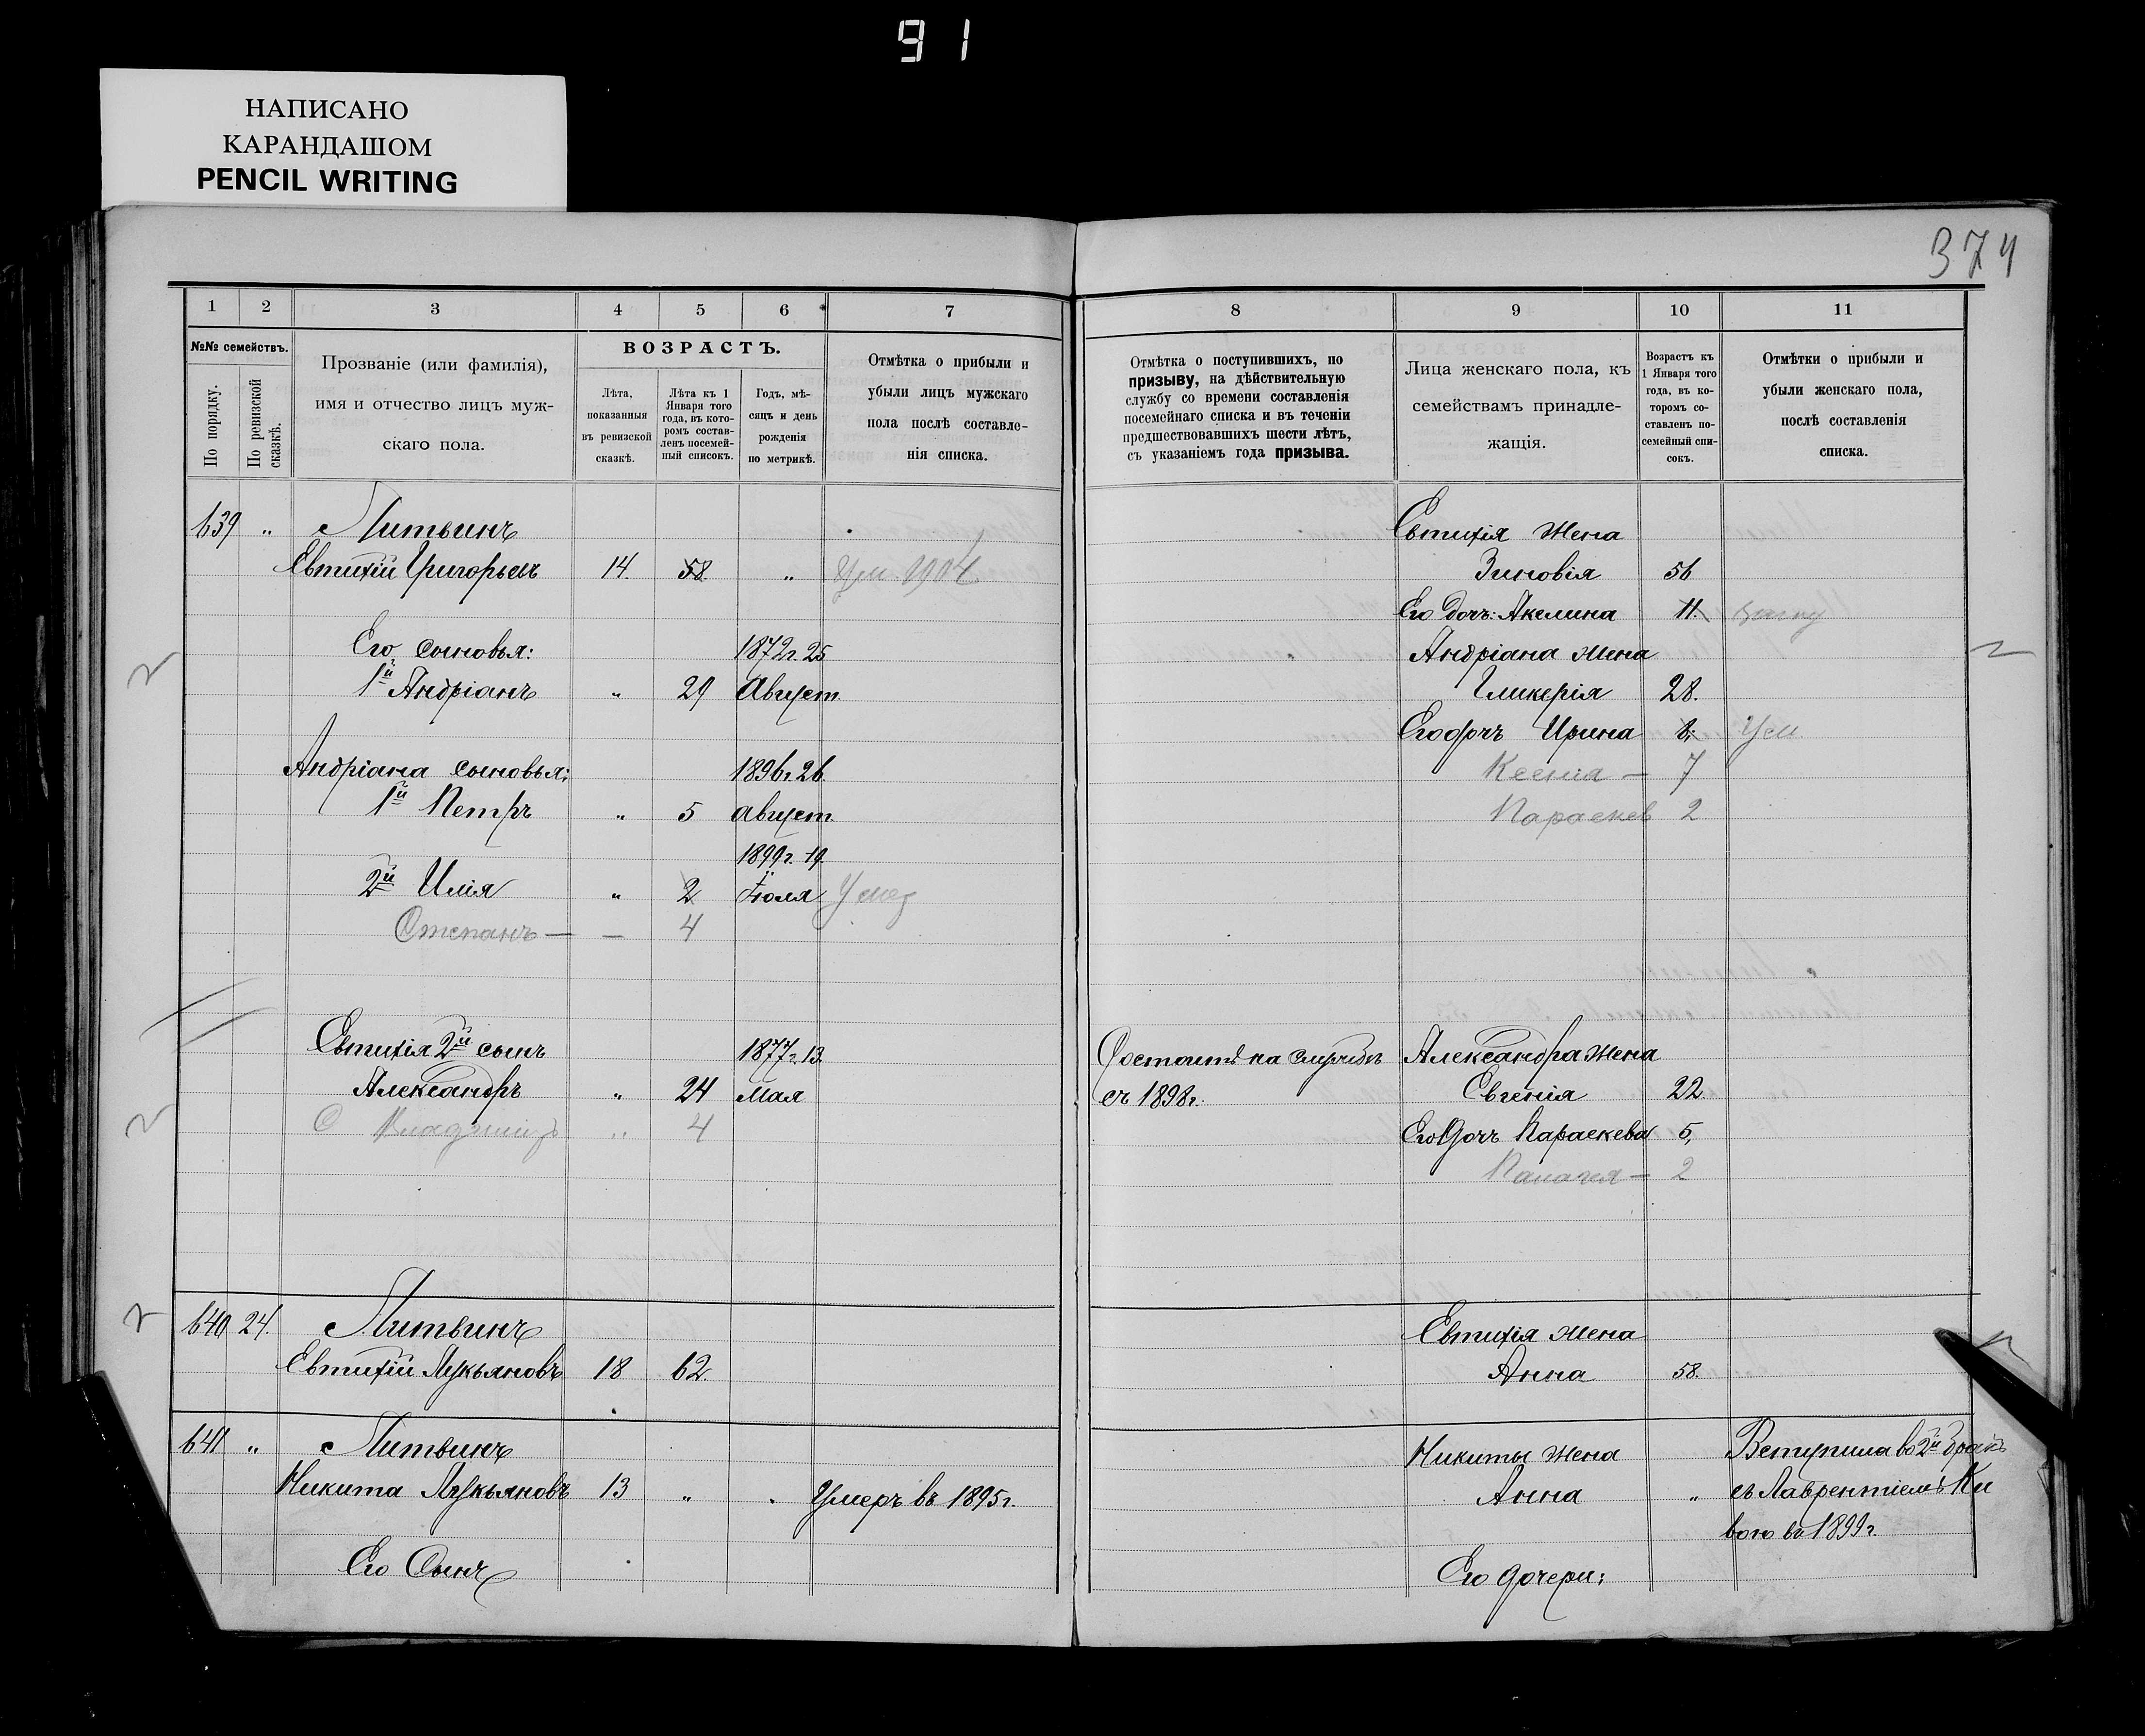 91
НАПИСАНО
КАРАНДАШОМ
PENCIL WRITING
374
1 2 3 4 5 6 7
№№ семействъ.
По порядку.
По ревизской сказкѣ.
Прозваніе (или фамилія),
имя и отчество лицъ муж-
скаго пола.
ВОЗРАСТЪ.
Лѣта,
показанныя
въ ревизской
сказкѣ.
Лѣта къ 1
Января того
года, въ кото-
ромъ состав-
ленъ посемей-
ный списокъ.
Годъ, мѣ-
сяцъ и день
рожденія
по метрикѣ.
Отмѣтка о прибыли и
убыли лицъ мужскаго
пола послѣ составле-
нія списка.
639 " Литвинъ
Евтихій Григорьевъ 14. 58. " Ум. 1904
Его сыновья: 1872г. 25
1й Андріанъ " 29 Август.
Андріана сыновья: 1896г. 26
1й Петръ " 5 август.
1899г. 19.
2й Илія " 2 Іюля Умер
Степанъ — — 4
Евтихія 2й сынъ 1877г. 13.
Александръ " 24 Мая
С Владиміръ " 4
640 24. Литвинъ
Евтихій Лукьяновъ 18 62.
641 " Литвинъ
Никита Лукьяновъ 13 " . Умеръ въ 1895г.
Его Сынъ
8 9 10 11
Отмѣтка о поступившихъ, по
призыву, на дѣйствительную
службу со времени составленія
посемейнаго списка и въ теченіи
предшествовавшихъ шести лѣтъ,
съ указаніемъ года призыва.
Лица женскаго пола, къ
семействамъ принадле-
жащія.
Возрастъ къ
1 Января того
года, въ ко-
торомъ со-
ставленъ по-
семейный спи-
сокъ.
Отмѣтки о прибыли и
убыли женскаго пола,
послѣ составленія
списка.
Евтихія жена
Зиновія 56
Его доч: Акелина 11.
Андріана жена
Гликерія 28.
Его дочъ Ирина 8. Ум
Ксенія — 7
Параскев 2
Состоитъ на службѣ Александра жена
съ 1898г. Евгенія 22.
Его дочъ Параскева 5,
Палагея — 2
Евтихія жена
Анна 58.
Никиты жена Вступила во 2й бракъ
Анна " съ Лаврентіемъ Ки
вою въ 1899г.
Его дочери: